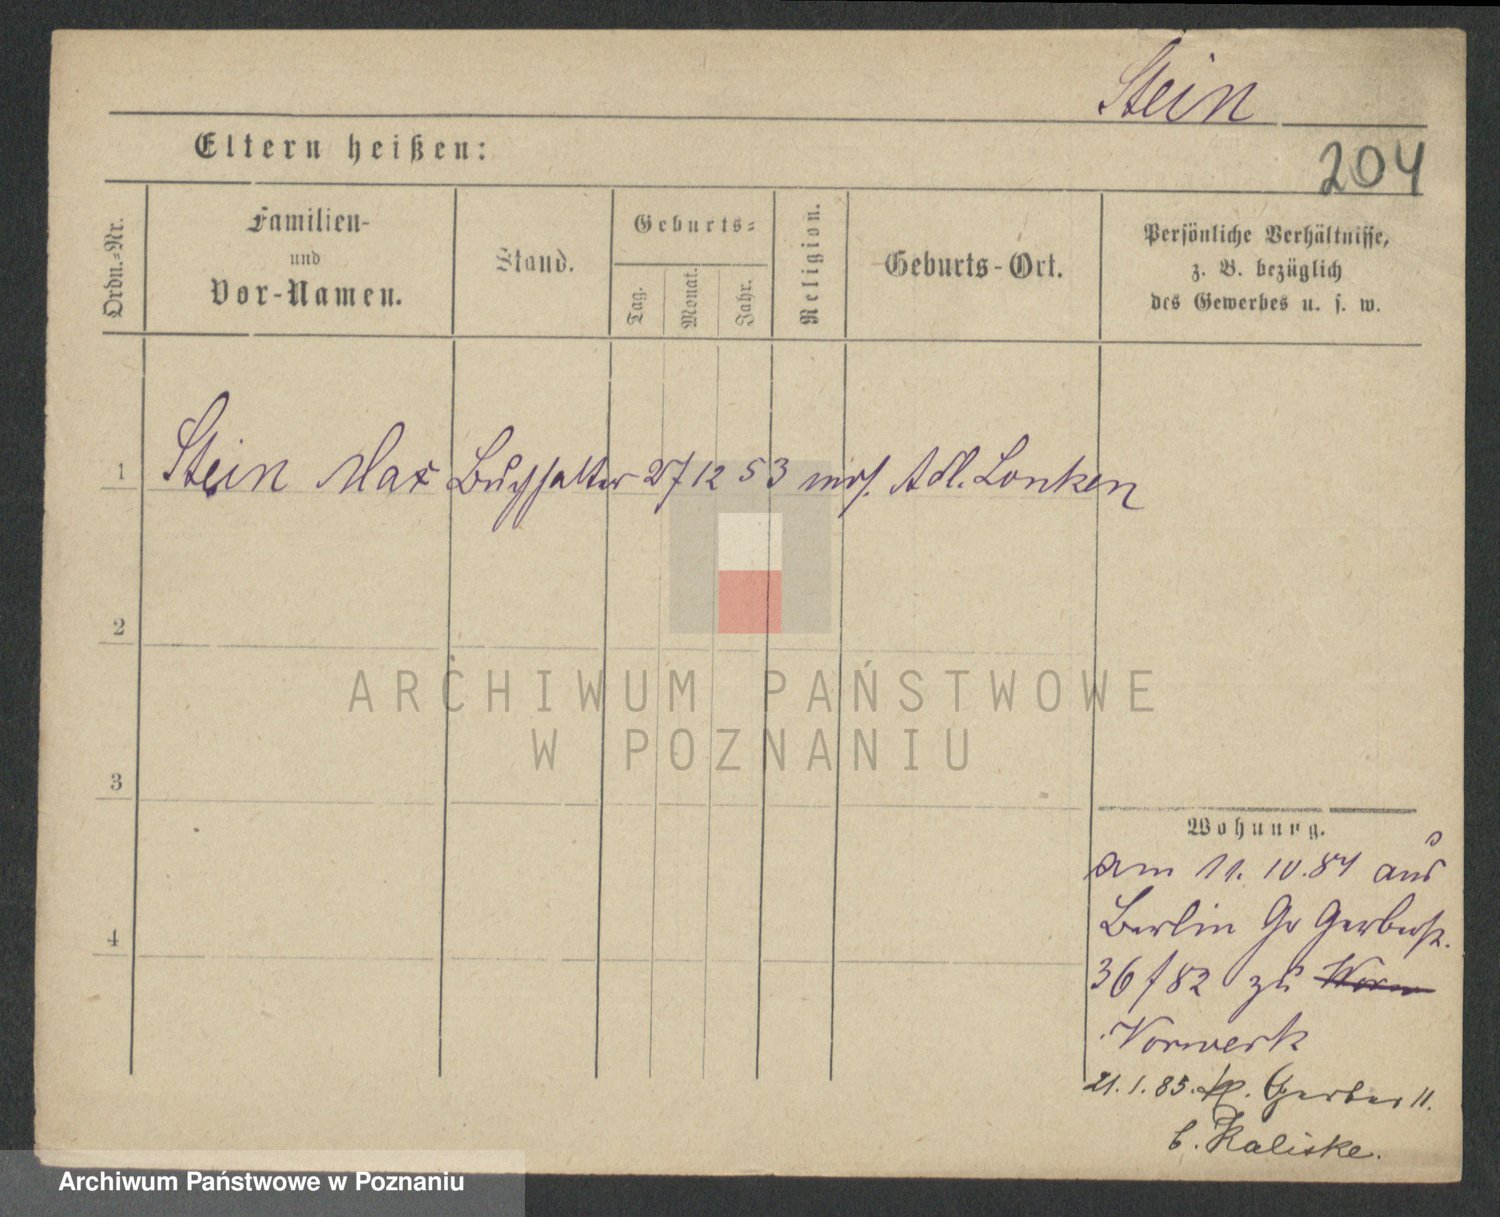 Stein
204
Eltern heißen:
Ordn.=Nr.
Familien-
und
Vor-Namen.
Stand.
Geburts=
Tag.
Monat.
Jahr.
Religion.
Geburts-Ort.
Persönliche Verhältnisse,
z. B. bezüglich
des Gewerbes u. s. w.
1 Stein Max Buchhalter 27 12 53 mos. Adl. Lonken
2
3
4
ARCHIWUM PAŃSTWOWE
W POZNANIU
Wohnung.
am 11.10.84 aus
Berlin Gr Gerberst.
36/82 zu Worw
Vorwerk
21.1.85. Kl. Gerber 11.
b. Kaliske.
Archiwum Państwowe w Poznaniu